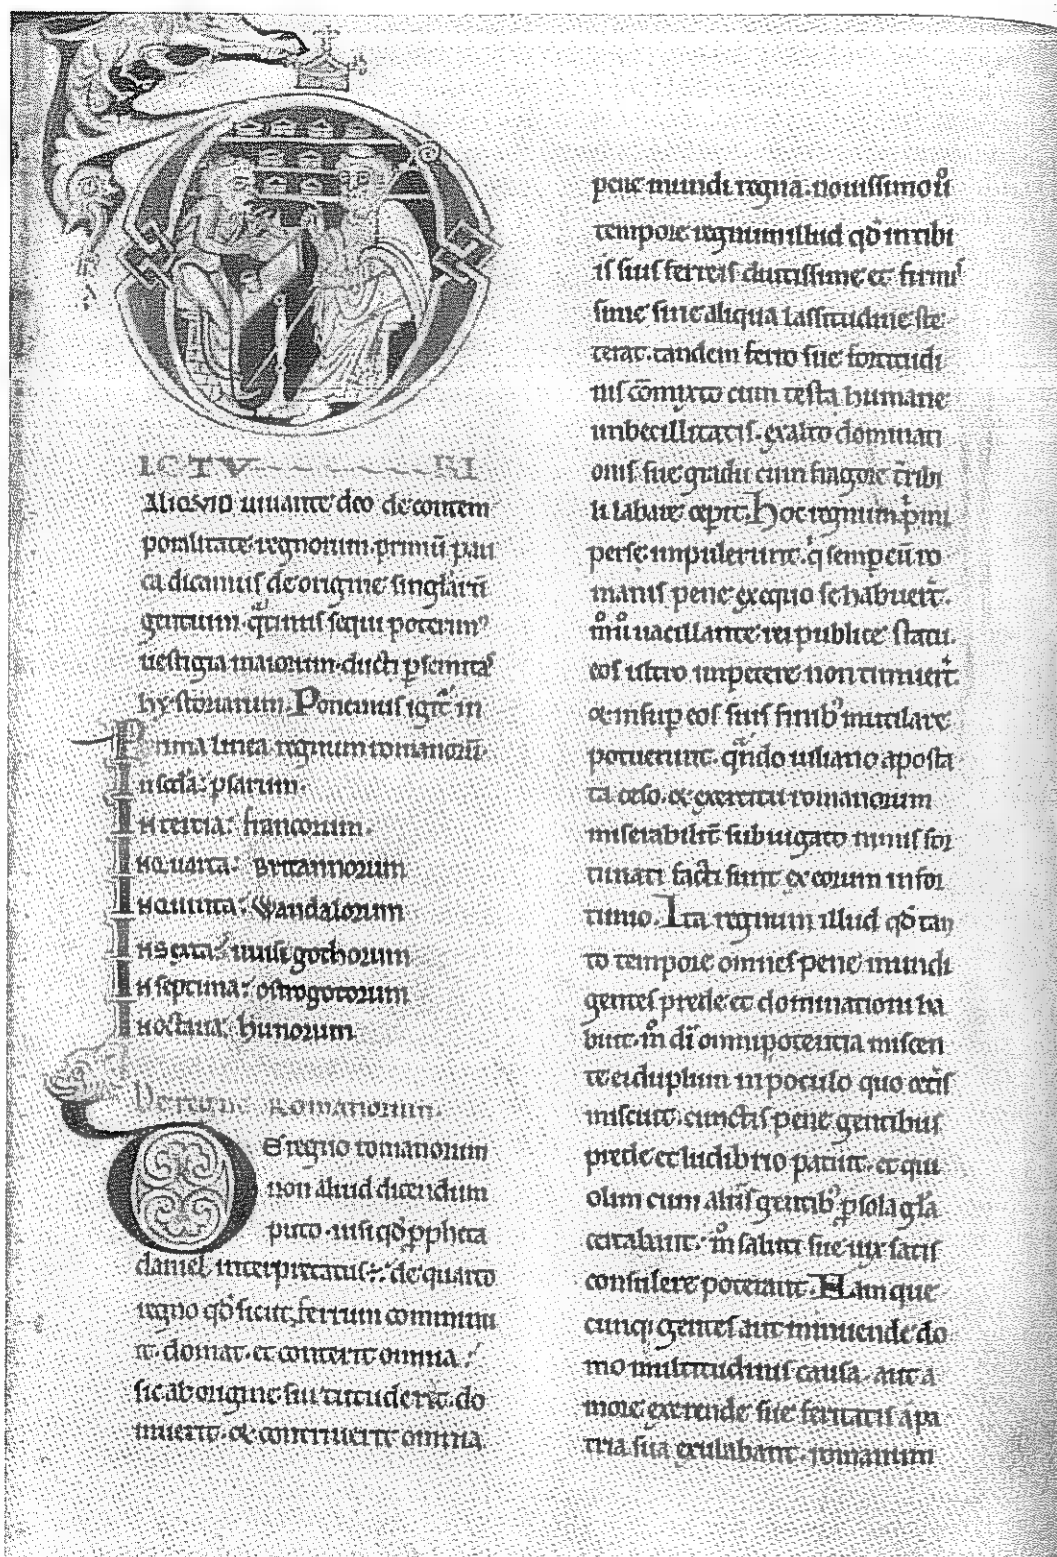 ICTVRI
ALIQVID iuuante deo de contem
poralitate regnorum. primū pau
ca dicamus de origine singlarū
gentium. q̄tinus sequi poterim⁹
uestigia maiorum. ducti ꝑ semitas
hystoriarum. Ponemus igit̄ in
Prima linea regnum romanorū.
In scđa: ꝑsarum.
In tercia: francorum.
In quarta: Britannorum
In quinta: Wandalorum
In sexta: wisigothorum
In septima: ostrogotorum
In octaua: hunorum
De regno Romanorum.
De regno romanorum
non aliud dicendum
puto. nisi qđ ꝓpheta
daniel interpretatus: de quarto
regno qđ sicut ferrum comminu
it. domat. et conterit omnia.
sic ab origine sui tutuderit. do
muerit. & contriuerit omnia
pene mundi regna. nouissimo ů
tempore regnum illud qđ in tibi
is suis ferreis durissime et firmis
sime sine aliqua lassitudine ste
terat. tandem ferro sue fortitudi
nis cōmixto cum testa humane
imbecillitatis. ex alto dominati
onis sue gradu cum fragore t̄ribi
li labare cepit. Hoc regnum pͥmi
perse impulerunt. qͥ semꝑ cū ro
manis pene ex equo se habuer̄t.
uacillante rei publice statu.
eos ultro impetere non timuer̄t.
& insuꝑ eos suis finib᾽ mutilare
potuerunt. qᷓndo iuliano aposta
ta ceso. & exercitu romanorum
miserabilit̄ subiugato nimis for
tunati facti sunt ex eorum infor
tunio. Ita regnum illud qđ tan
to tempore omnes pene mundi
gentes prede et dominationi ha
buit. m̊ dī omnipotentia miscen
te ei duplum in poculo quo cet̄is
miscuit. cunctis pene gentibus
prede et ludibrio patuit. et qui
olim cum aliis gentib᾽ ꝑ sola gl̄a
certabant. m̊ saluti sue uix satis
consulere poterant. Nam que
cunq; gentes aut minuende do
mo multitudinis causa. aut a
more exerende sue feritatis a pa
tria sua exulabant. romanum